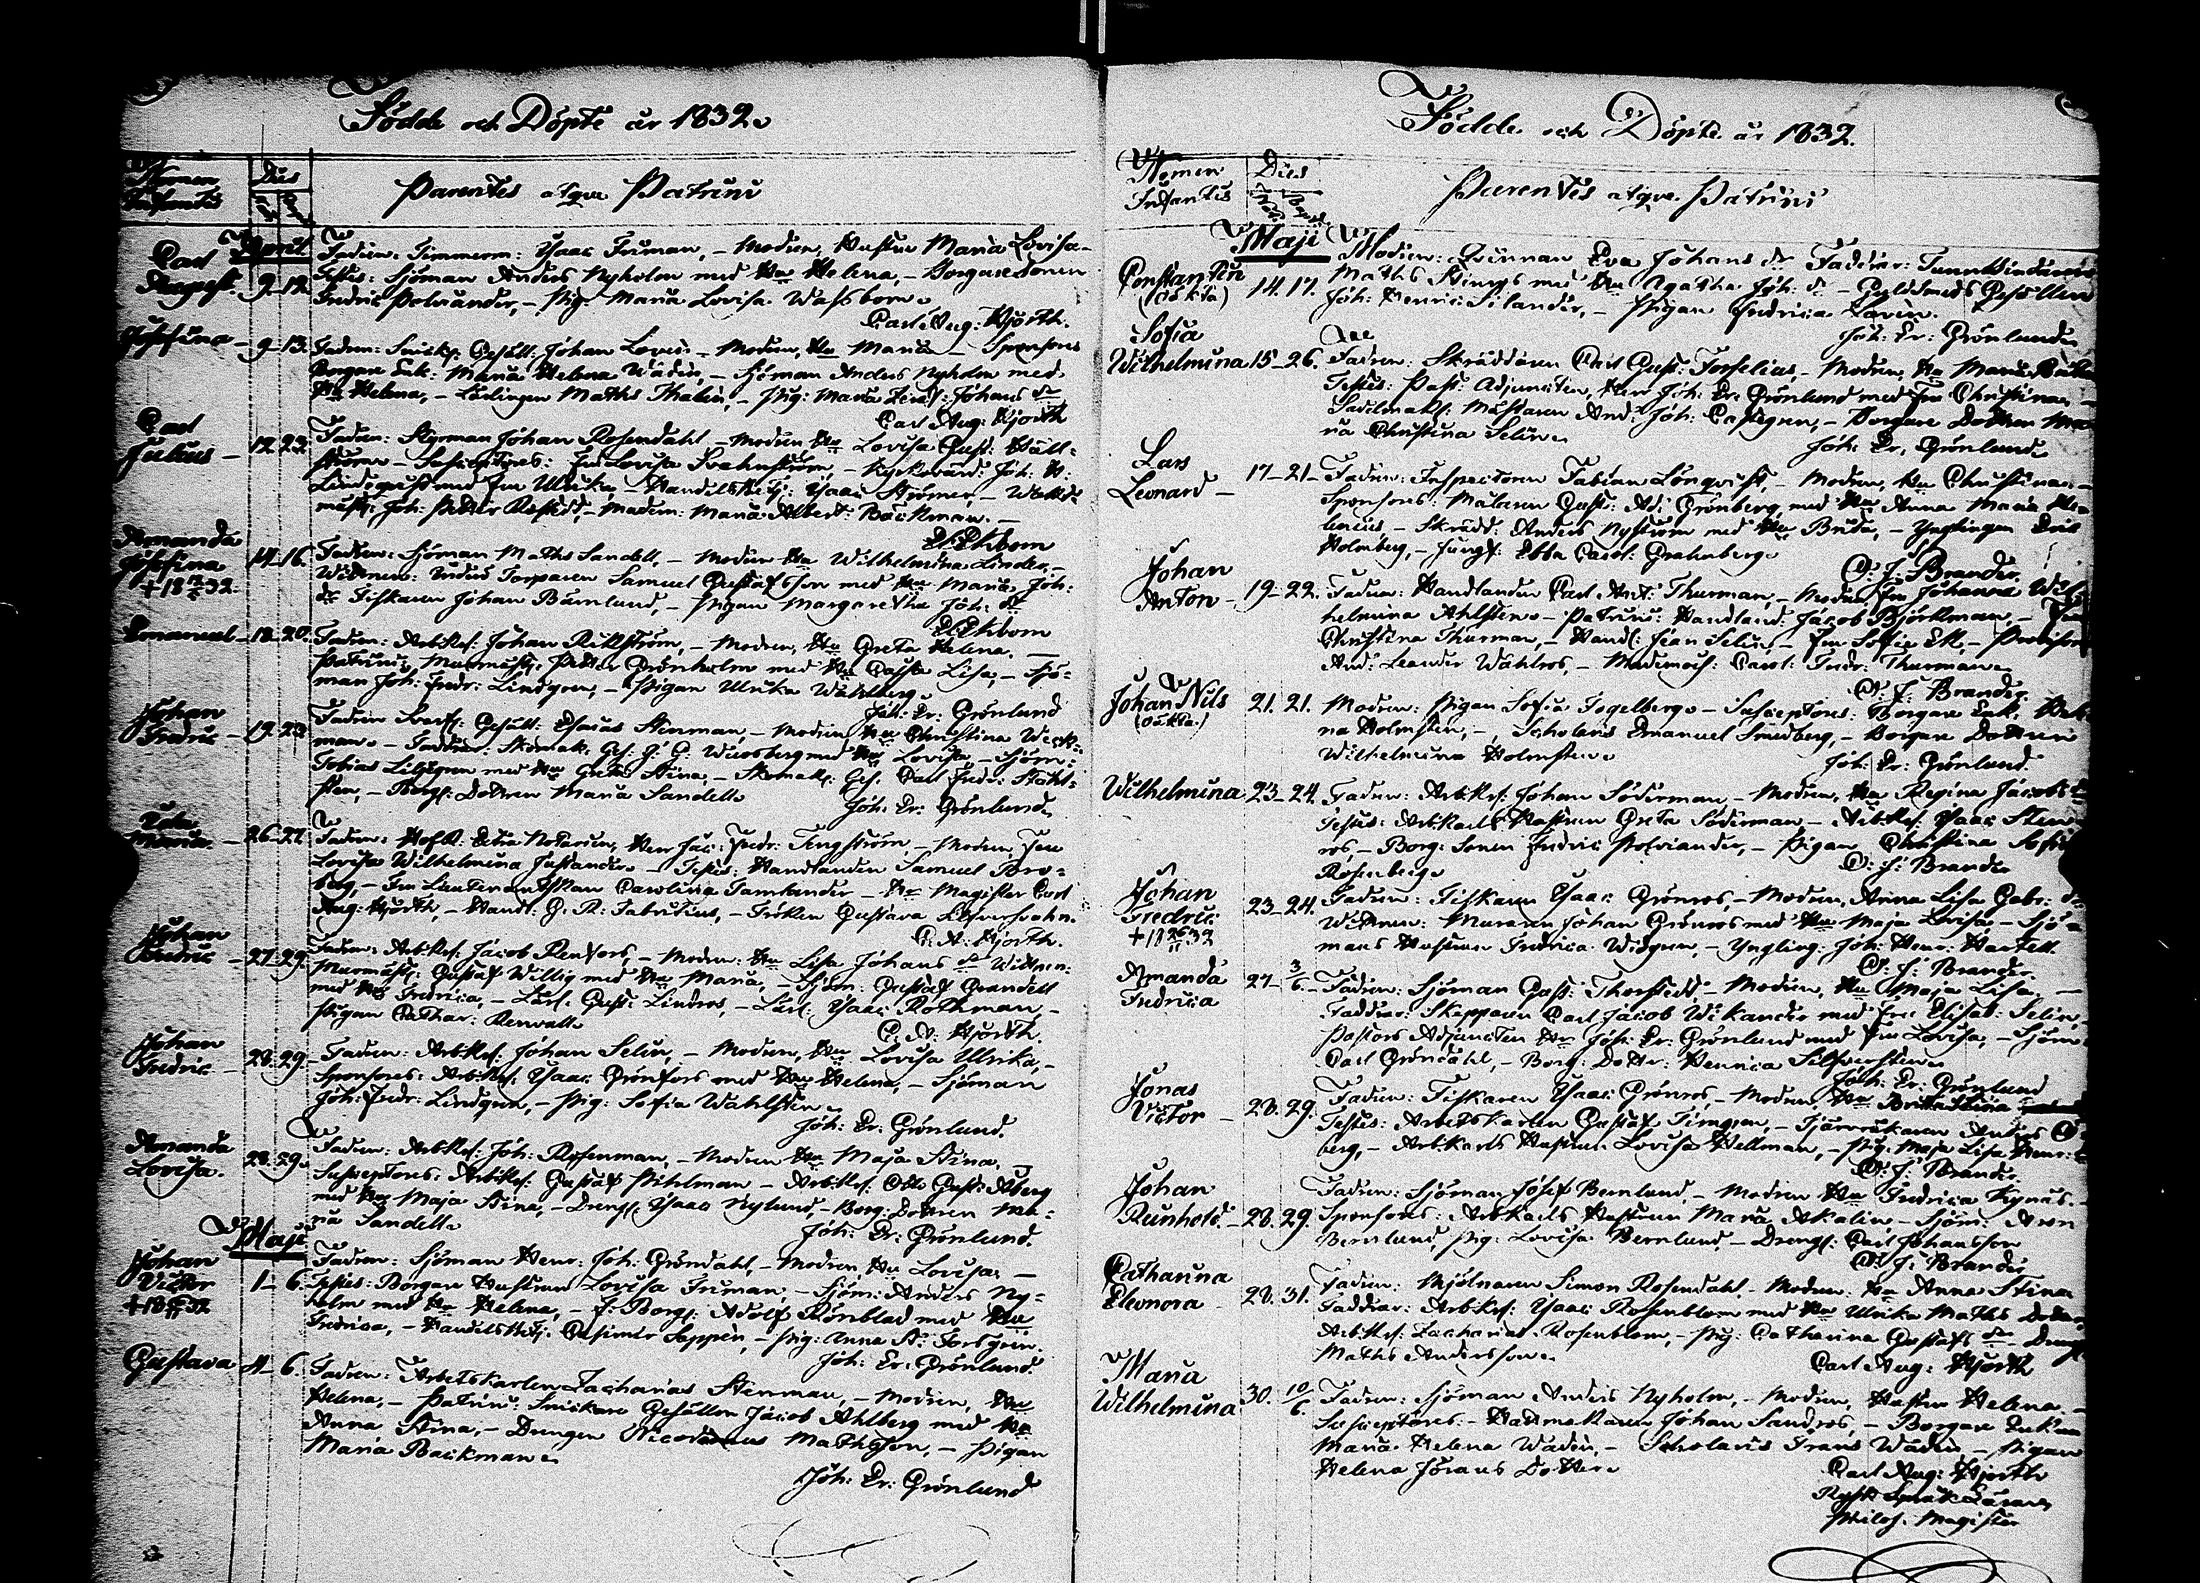 Födde och Döpte år 1832.
Nomen Infantis
Dies
Parentes atqve Patrini
April
Carl August. 9. 12. Fadren: Timmerm: Isaac Friman, – Modren, Hustrun Maria Lovisa –
Testes: Sjöman Anders Nyholm med Hu Helena, – Borgare Sonen
Fredric Polviander, – Pig: Maria Lovisa Wassborn.
Carl Aug: Hjorth.
Josefina – 9 – 13. Fadren: Snick: Gesäll: Johan Loven – Modren, Hu Maria – Sponsores
Borgare Enk: Maria Helena Wadén, – Sjöman Anders Nyholm med
Hu Helena, – Lärlingen Maths Thalin, – Pig: Maria Johans dr
Carl Aug: Hjorth
Carl Julius – 12 23. Fadren: Styrman Johan Rosendahl – Modren Hu Lovisa Gust: Häll-
ström – Susceptores: Fru Lovisa Svahnström, – Kyrkovärd: Joh: H:
Lindqvist med Fru Ulrika, – Handelsbetj: Isaac Strömer, –
Joh: Petter – Madem: Maria Albert: Bäckman. –
Ekbom
Amanda Josefina 14 – 16. Fadren: Sjöman Maths Sandell, – Modren Hu Wilhelmina Linder, –
+ 18 32. Wittnen: Torparen Samuel Gustafsson med Hu Maria Joh:
dr Fiskaren Johan Bärnlund, – Pigan Margaretha Joh: dr
Ekbom
Emanuel – 18 – 20. Fadren: Arb:Karl: Johan Rillström, – Modren, Hu Greta Helena. –
Patrini: Murmäst: Petter Grönholm med Hu Cajsa Lisa, – Sjö-
man Joh: Fredr: Lindgren, – Pigan Ulrika Wahlberg.
Joh: Er: Grönlund
Johan Fredric – 19. 23 Fadren Gesäll: Esaias Stenman, – Modren, Hu Christina Weck-
man. – Faddrar: Skomak: Ges: G: G: Wuosberg med Hu Lovisa, – Sjöm:
Tobias Liljegren med Hu Greta Stina, – Skomak: Ges: Carl Fredr: Ståhl-
sten, – Borg: Dottren Maria Sandell.
Joh: Er: Grönlund.
Maria – 26 – 27. Fadren: Notarien, Herr Jac: Fredr: Tengström, – Modren, Fru
Lovisa Wilhelmina Justander. – Testes: Handlanden Samuel Bro-
berg, – Fru Lieutenantskan Carolina Tamlander – Hr Magister Carl
Aug: Hjorth, – Handl: G. R: Fabritius, – Fröken Gustava Silfversvahn.
C. A: Hjorth.
Johan Fredric – 27. 29. Fadren: Arb:Karl: Jacob Renfors, – Modren: Hu Lisa Johans dr Wittnen:
Murmäst: Gustaf Willig med Hu Maria, – Sjöm: Gustaf Grandell
med Hu Fredrica, – Lärl: Gust: Lindros, – Lärl: Isaac Rothman, –
Pigan Cathar: Renvall.
C. A: Hjorth.
Johan Fredric – 28. 29. Fadren: Arb:Karl: Johan Selin, – Modren, Hu Lovisa Ulrika, –
Sponsores: Arb:Karl: Isaac Grönfors med Hu Helena, – Sjöman
Joh: Fredr: Lindgren, – Pig: Sofia Wahlsten
Joh: Er: Grönlund.
Amanda Lovisa. 28. 29. Fadren: Arb:Karl: Joh: Rosenman, – Modren Hu Maja Stina. –
Susceptores: Arb:Karl: Gustaf Pihlman – Arb:Karl: Carl Gust: Åberg
med Hu Maja Stina, – Dreng: Isaac Nylund, – Borg: Dottren Ma-
ria Sandell.
Joh: Er: Grönlund.
Maji
Johan Victor 1 – 6. Fadren: Sjöman Henr: Joh: Gröndahl, – Modren, Hu Lovisa –
+ 18 32 Testes: Borgare Hustrun Lovisa Friman, – Sjöm: Anders Ny-
holm med Hu Helena, – F: Borg: Adolf Rönblad med Hu
Fredrica, – Handelsbetj: Casimir Seppén, – Pig: Anna St: Forsgren.
Joh: Er: Grönlund.
Gustava 4 – 6. Fadren: Arbetskarlen Zacharias Stenman, – Modren, Hu
Helena, – Patrini: Snickare Gesällen Jacob Ahlberg med Hu
Anna Stina, – Drengen Nicodemus Mathsson, – Pigan
Maria Backman.
Joh: Er: Grönlund
Födde och Döpte år 1832.
Nomen Infantis
Dies
Parentes atqve Patrini
Maji
Constantin (oäkta) 14. 17. Modren: Qvinnan Eva Johans dr Faddrar: Tunnbindaren
Maths Stings med Hu Agatha Joh: dr – Guldsmeds Gesällen
Joh: Henric Silander, – Pigan Fredrica Lavin.
Joh: Er: Grönlund
Sofia Wilhelmina 15 – 26. Fadren: Skräddaren Carl Gust: Forselius, – Modren, Hu Maria
Testes: Past: Adjuncten, Herr Joh: Er: Grönlund med Fru Christina, –
Sadelmak: Mästaren And: Joh: Castegren, – Borgare Dottren Ma-
ria Christina Selin.
Joh: Er: Grönlund.
Lars Leonard – 17 – 21 – Fadren: Inspectoren Fabian Lönqvist, – Modren, Hu Christina. –
Sponsores: Målaren Gust: Ad: Grönberg, med Hu Anna Maria He-
lenius – Skrädd: Anders Nyström med Hu Brita, – Ynglingen Carl
Holmberg, – Jungf: Ebba Carol: Grahnberg.
C: J: Brander.
Johan Anton – 19 – 22. Fadren: Handlanden Carl Ant: Thurman, – Modren, Fru Johanna Wil-
helmina Ahlsten. – Patrini: Handland: Jacob Björkman, – Fru
Christina Thurman, – Handl: Jean Selin, – Fru Sofia Ek, –
And: Leander Wahlroos, – Mademois: Carol: Fredr: Thurman.
C: J: Brander.
Johan Nils (oäkta.) 21. 21. Modren: Pigan Sofia Fogelberg. – Susceptores: Borgare Enk:
na Holmsten, – Scholaris Emanuel Smedberg, – Borgare Dottren
Wilhelmina Holmsten.
Joh: Er: Grönlund.
Wilhelmina 23 – 24. Fadren: Arb:Karl: Johan Söderman, – Modren, Hu Regina Jacobs dr
Testes: Arb:Karls Hustrun Greta Söderman – Arb:Karl: Isaac Sten-
ros, – Borg: Sonen Fredric Polviander, – Pigan Christina Sofia
Rosenberg.
C: J: Brander
Johan Fredric 23 – 24. Fadren: Fiskaren Isaac Grönros, – Modren, Anna Lisa Gabr: dr
+ 18 32 Wittnen: Muraren Johan Grönroos med Hu Maja Lovisa, – Sjö-
mans Hustrun Fredrica Widgren, – Yngling: Joh: Henr: Hartell.
C: J: Brander.
Amanda Fredrica 27 – 3/6. – Fadren: Sjöman Gust: Thorstedt, – Modren, Hu Maja Lisa. –
Faddrar: Skepparen Carl Jacob Wikander med Fru Elisab: Selin, –
Pastors Adjuncten Hr Joh: Er: Grönlund med Fru Lovisa, – Sjöm:
Carl Gröndahl, – Borg: Dotter: Henrica Silfversten.
Joh: Er: Grönlund
Jonas Victor – 28. 29. Fadren: Fiskaren Isaac Grönros, – Modren Hu Brita Stina
Testes: Arbetskarlen Gustaf Timgren, – Anders
berg, – Arb:Karls Hustrun Lovisa Hellman, – Pig: Maja Lisa Henr: dr
C: J: Brander.
Johan Reinhold – 28. 29. Fadren: Sjöman Josef Bernlund, – Modren Hu Fredrica –
Sponsores: Arb:Karls Hustrun Maria Akalin – Sjöm:
Bernlund, Pig: Lovisa Bernlund, – Drengs: Carl Johansson
C: J: Brander
Catharina Eleonora – 28. 31. Fadren: Mjölnaren Simon Rosendahl, – Modren: Hu Anna Stina
Faddrar: Arb:Karl: Isaac Rosenblom med Hu Ulrika Maths Dotter,
Arb:Karl: Zacharias Rosenblom, – Pig: Catharina Gustafs dr – Dreng
Maths Andersson.
Carl Aug: Hjorth
Maria Wilhelmina 30. 10/6. Fadren: Sjöman Anders Nyholm, – Modren, Hustrun Helena –
Susceptores: – Hattmakaren Johan Sandros, – Borgare Enkan
Maria Helena Wadén, – Scholaris Frans Wadén – Pigan
Helena Jörans Dotter.
Carl Aug: Hjorth
Rysk Språk Lärare
Philos: Magister